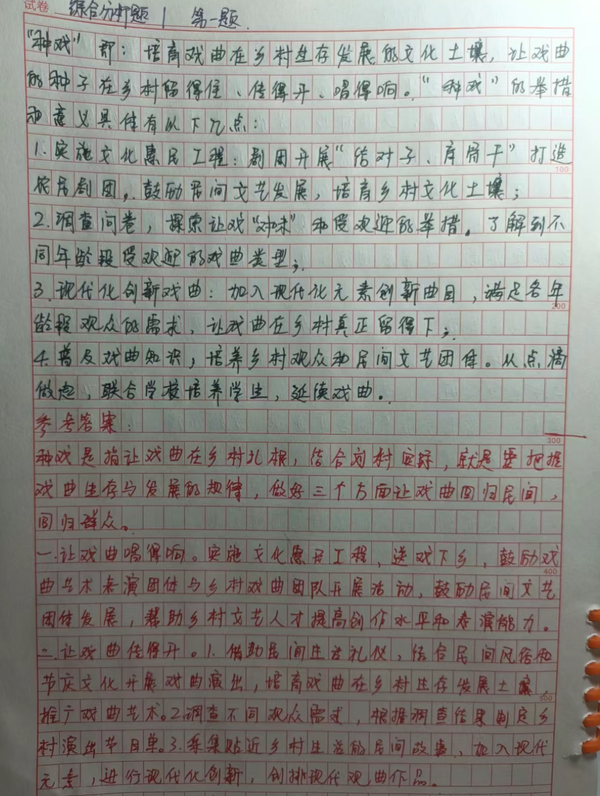 试卷 综合分析题1 第一题.
"种戏"即：培育戏曲在乡村生存发展的文化土壤，让戏曲
的种子在乡村留得住、传得开、唱得响。"种戏"的举措
和意义具体有以下几点：
1.实施文化惠民工程：剧团开展"结对子、育骨干"打造
农民剧团，鼓励民间文艺发展，培育乡村文化土壤；
100
2.调查问卷，探索让戏"对味"和受欢迎的举措。了解到不
同年龄段受欢迎的戏曲类型；
3.现代化创新戏曲：加入现代化元素创新曲目，满足各年
龄段观众的需求，让戏曲在乡村真正留得下；
4.普及戏曲知识，培养乡村观众和民间文艺团体。从点滴
做起，联合学校培养学生，延续戏曲。
参考答案：
300
种戏是指让戏曲在乡村扎根，结合农村实际，就是要把握
戏曲生存与发展的规律，做好三个方面让戏曲回归民间，
回归群众。
一.让戏曲唱得响。实施文化惠民工程，送戏下乡，鼓励戏
400
曲艺术表演团体与乡村戏曲团队开展活动，鼓励民间文艺
团体发展，帮助乡村文艺人才提高创作水平和表演能力。
二.让戏曲传得开。1.借助民间生活礼仪，结合民间风俗和
节庆文化开展戏曲演出，培育戏曲在乡村生存发展土壤
500
推广戏曲艺术。2.调查不同观众需求，根据调查结果制定乡
村演出节目单。3.采集贴近乡村生活的民间故事，加入现代
元素，进行现代化创新，创排现代戏曲作品。